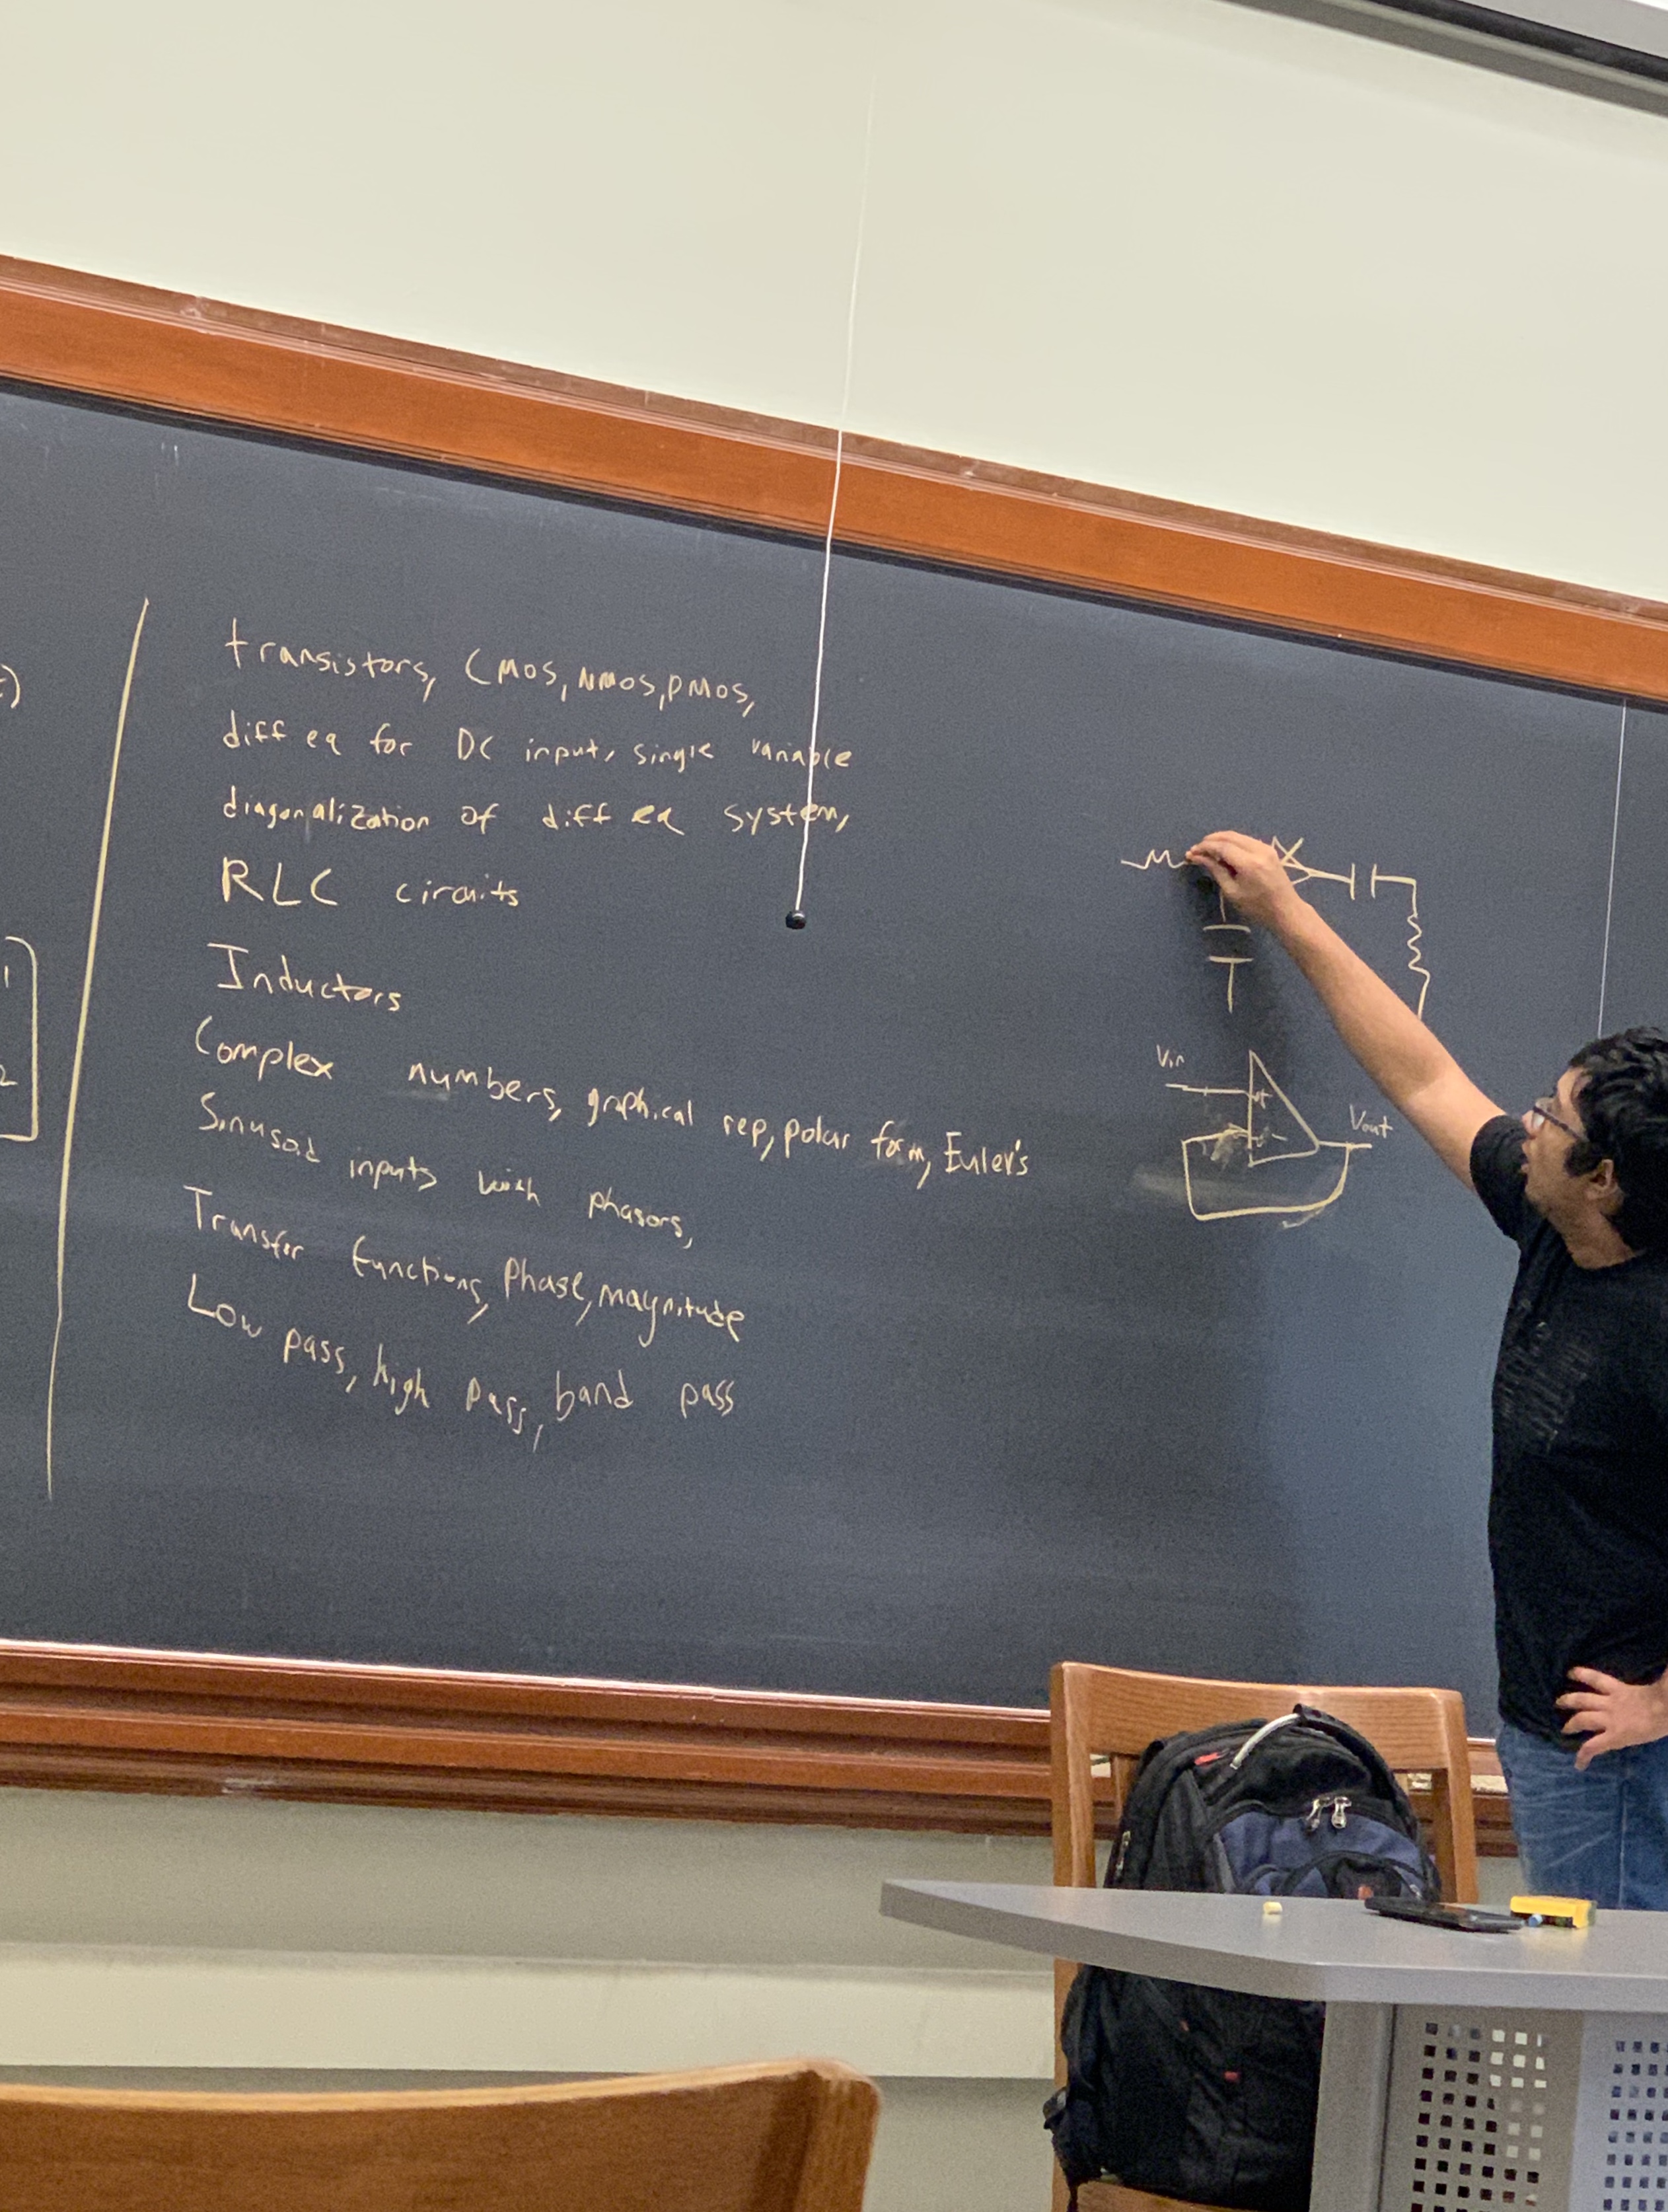 transistors, CMOS, NMOS, PMOS,
diff eq for DC input, single variable
diagonalization of diff eq system,
RLC circuits
Inductors
Complex numbers, graphical rep, polar form, Euler's
Sinusoid inputs with phasors,
Transfer functions, Phase, magnitude
Low pass, high pass, band pass
Vin
+
-
Vout
)
1
2